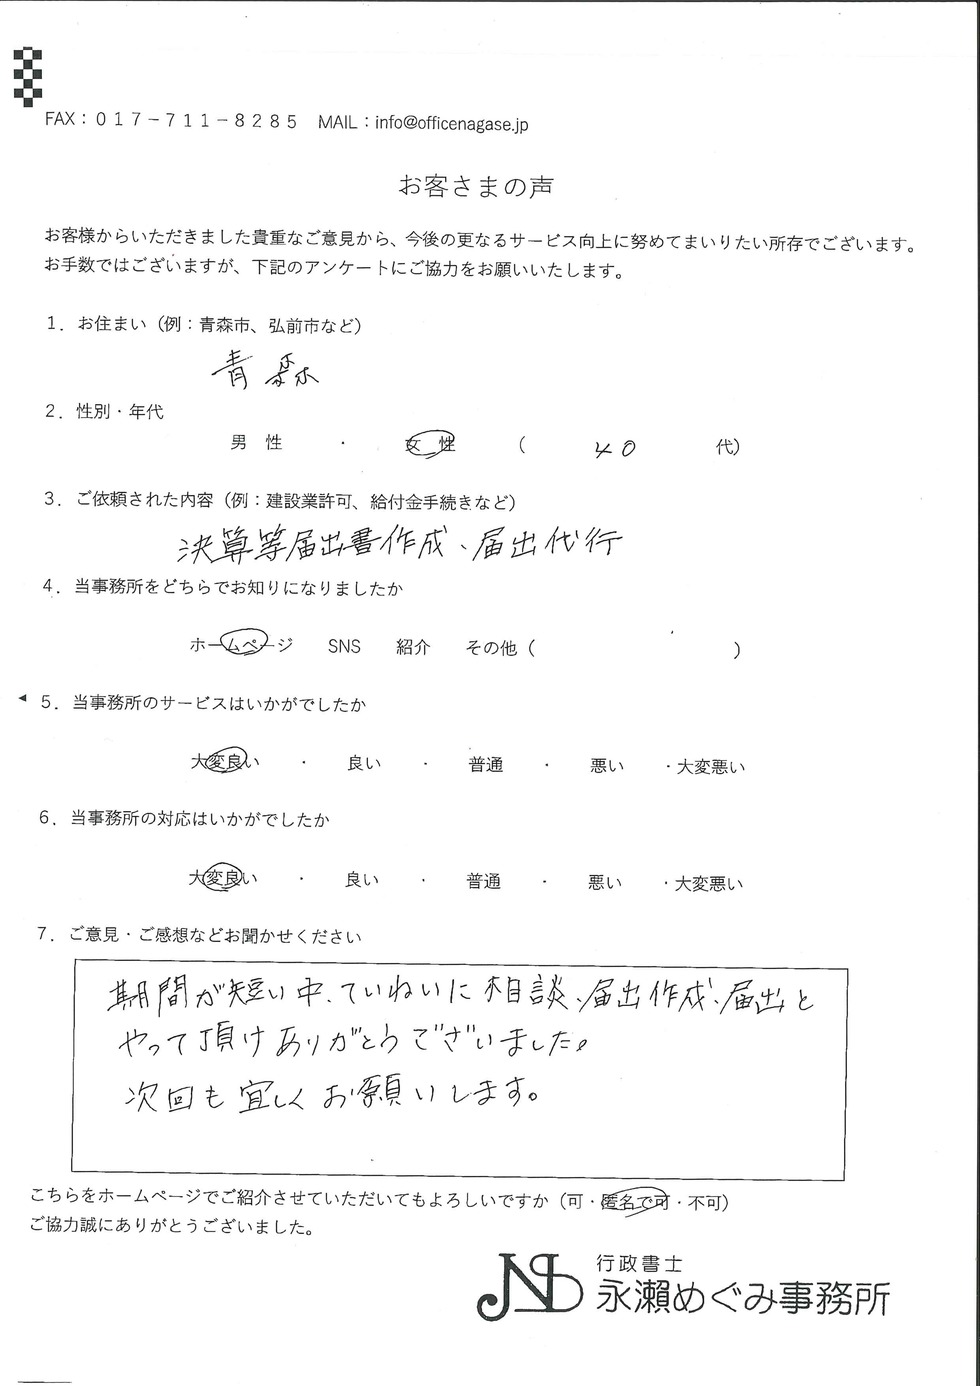 FAX：０１７－７１１－８２８５　MAIL：info@officenagase.jp
お客さまの声
お客様からいただきました貴重なご意見から、今後の更なるサービス向上に努めてまいりたい所存でございます。
お手数ではございますが、下記のアンケートにご協力をお願いいたします。
１．お住まい（例：青森市、弘前市など）
青森
２．性別・年代
男　性　・　女　性　（　40　代）
３．ご依頼された内容（例：建設業許可、給付金手続きなど）
決算等届出書作成、届出代行
４．当事務所をどちらでお知りになりましたか
ホームページ　SNS　紹介　その他（　）
５．当事務所のサービスはいかがでしたか
大変良い　・　良い　・　普通　・　悪い　・大変悪い
６．当事務所の対応はいかがでしたか
大変良い　・　良い　・　普通　・　悪い　・大変悪い
７．ご意見・ご感想などお聞かせください
期間が短い中、ていねいに相談、届出作成、届出と
やって頂けありがとうございました。
次回も宜しくお願いします。
こちらをホームページでご紹介させていただいてもよろしいですか（可・匿名で可・不可）
ご協力誠にありがとうございました。
行政書士
永瀬めぐみ事務所